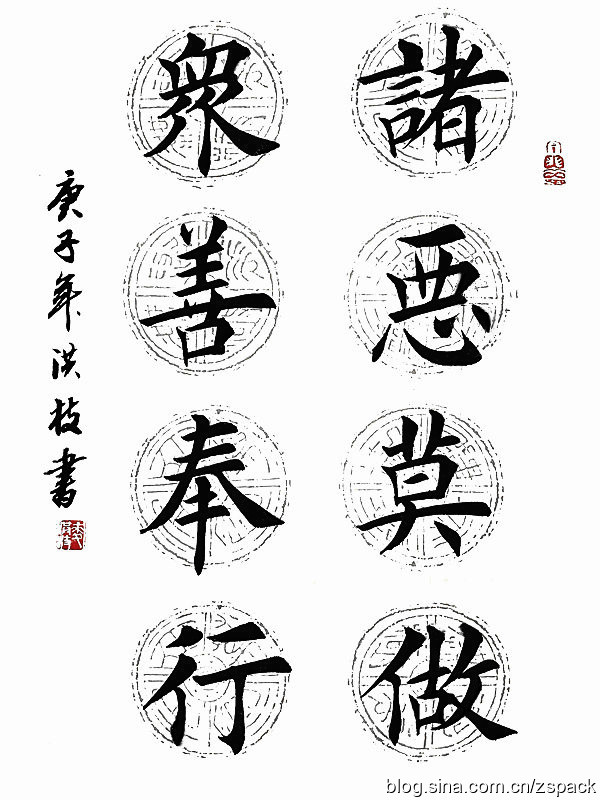 諸惡莫做
衆善奉行
庚子年洪枝書
blog.sina.com.cn/zspack